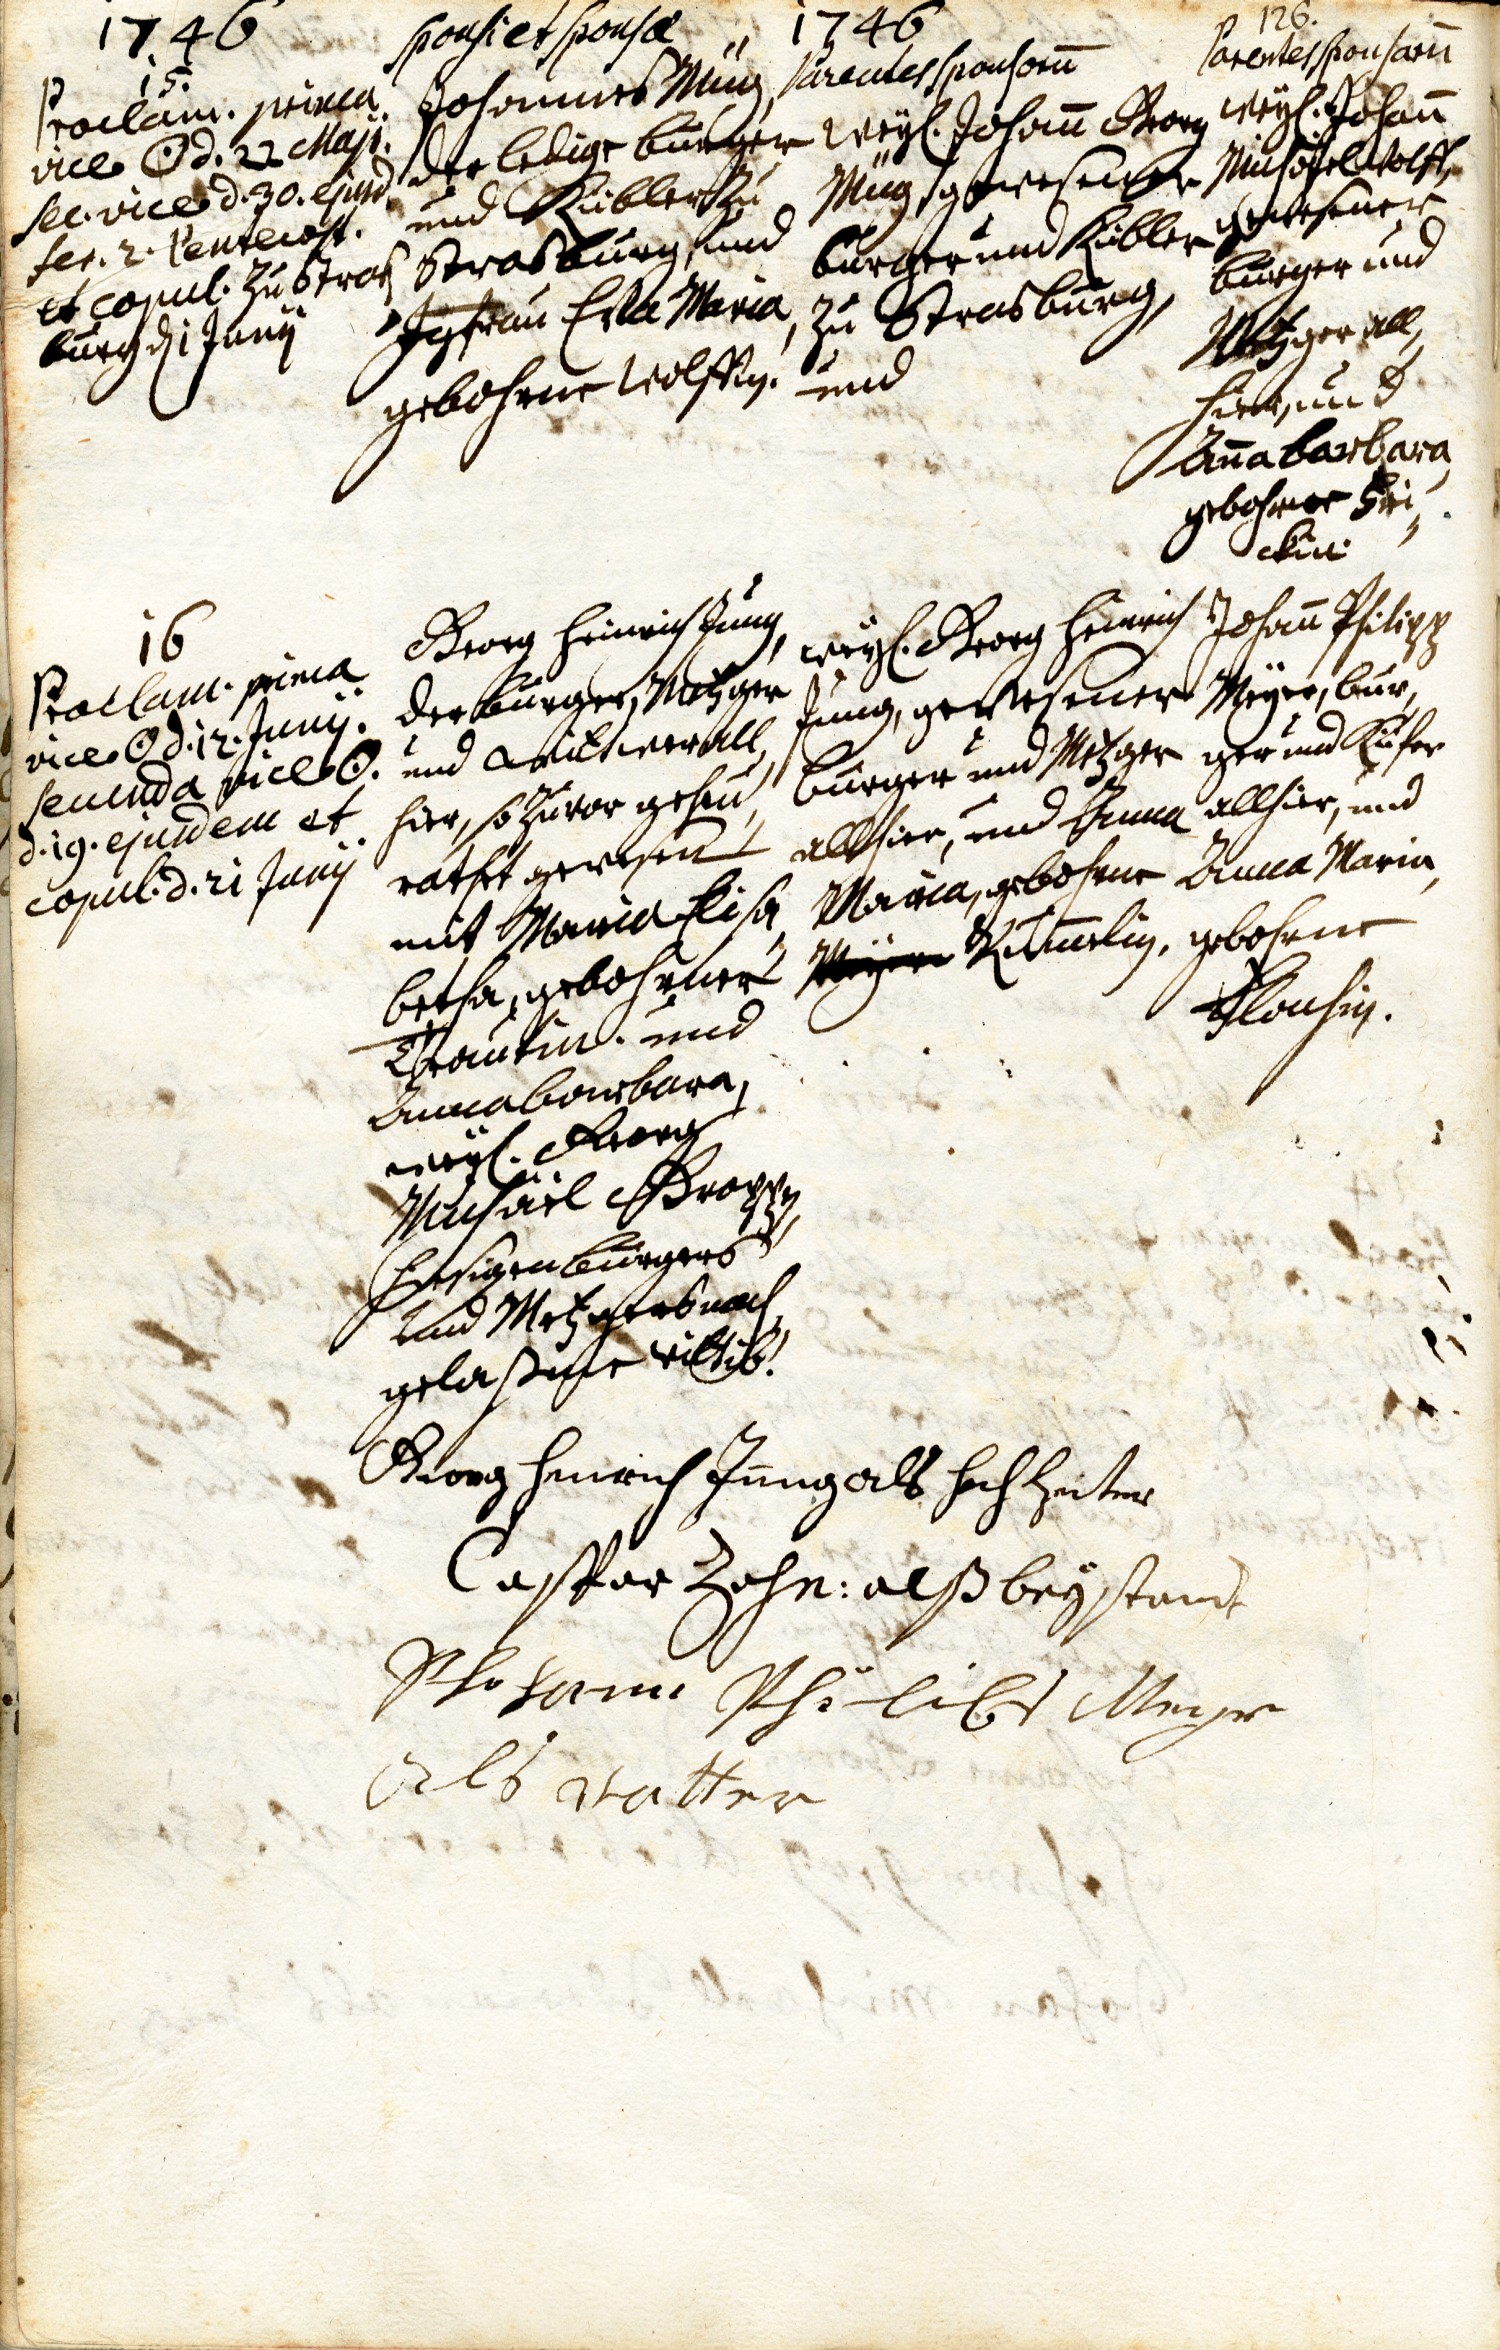 1746
sponsi et sponsæ
1746
126.
Parentes sponsorū
Parentes sponsarū
15.
Proclam. prima
vice ☉ d. 22 Maji.
sec. vice d. 30. ejusd.
fer. 2. Pentecost.
et copul. zu Stras
burg d. 1 Junij
Johannes Müg,
der ledige burger
und Kübler zu
Strasburg, und
Jgfrau Eva Maria,
gebohrne Wolffin.
weyl. Johann Georg
Müg, gewesener
burger und Kübler
zu Strasburg,
und
weyl. Johann
Michael Wolff,
gewesener
burger und
Metzger all,
hier, und
Anna barbara
gebohrne
ckin.
16
Proclam. prima
vice ☉ d. 12. Junij.
secunda vice ☉.
d. 19. ejusdem et
copul. d. 21 Junij
Georg Heinrich Jung,
der burger, Metzger
und Wittwer all,
hier, so zuvor geheu,
rathet gewesen
mit Maria Elisa,
betha, gebohrner
und
Anna barbara,
weyl. Georg
Michael Gropp,
hiesigen burgers
und Metzgers nach,
gelaßene Wittib.
weyl. Georg Heinrich
Jung, gewesener
burger und Metzger
allhier, und Anna
Maria, gebohrne
Meyer Kümmelin.
Johann Philipp
Meyer, bur,
ger und Küfer
allhier, und
Anna Maria,
gebohrne
Georg Henrich Jung als Hochzeiter
Casper Zehn: alß beystand
Johann Philibs Meyer
als vatter